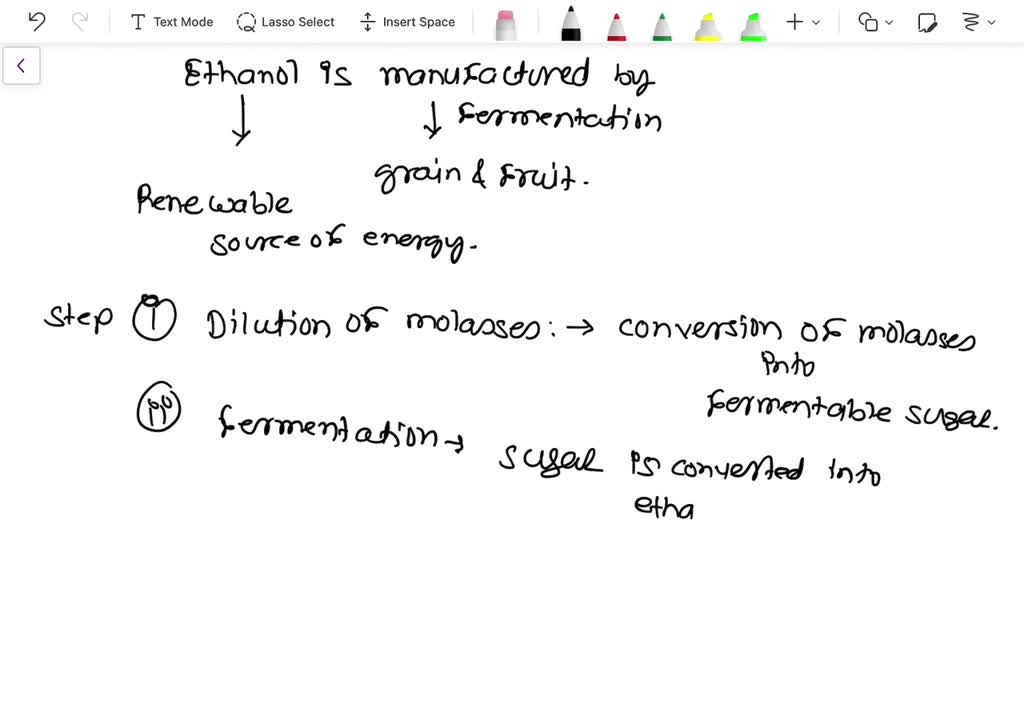 Text Mode Lasso Select Insert Space
Ethanol is manufactured by
Fermentation
grain & Fruit.
Renewable
source of energy.
Step i Dilution of molasses: → conversion of molasses
into
fermentable sugar.
ii fermentation → sugar is converted into
etha